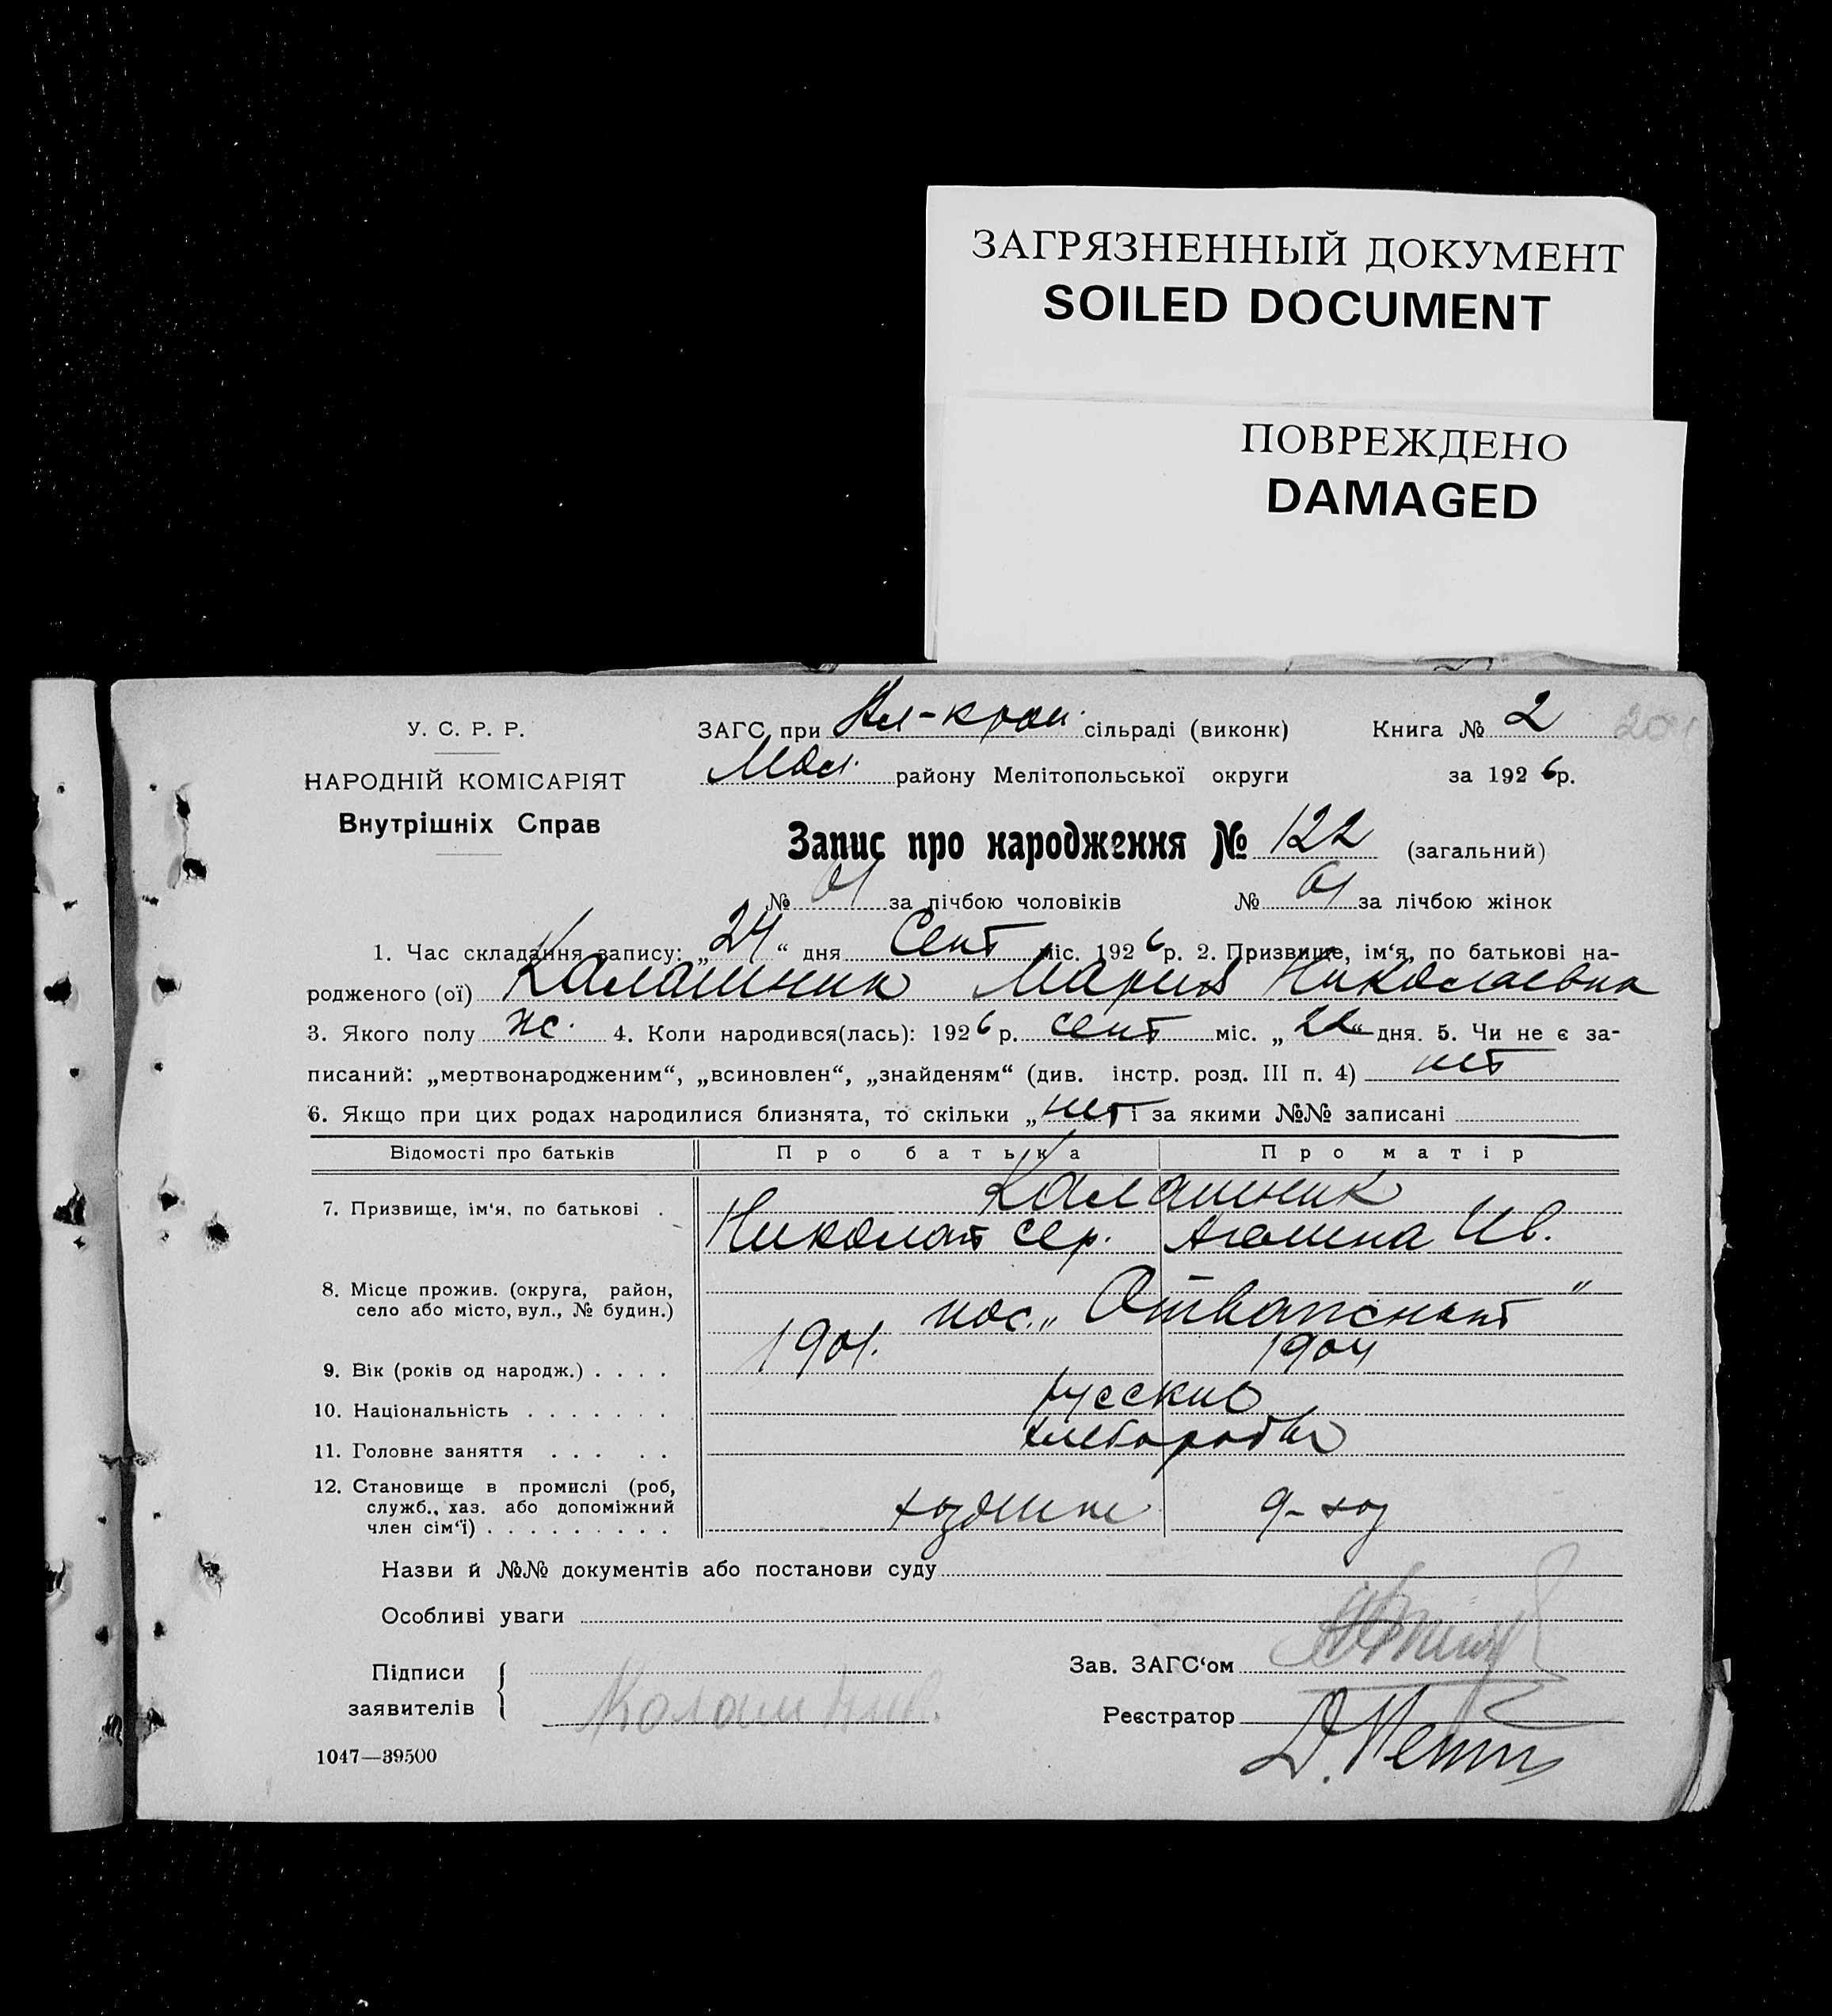 ЗАГРЯЗНЕННЫЙ ДОКУМЕНТ
SOILED DOCUMENT
ПОВРЕЖДЕНО
DAMAGED
У. С. Р. Р.
НАРОДНІЙ КОМІСАРІЯТ
Внутрішніх Справ
ЗАГС при сільраді (виконк) Книга № 2
району Мелітопольської округи за 1926р.
Запис про народження № 122 (загальний)
№ за лічбою чоловіків № 61 за лічбою жінок
1. Час складання запису: „24“ дня Сент міс. 1926р. 2. Призвище, ім‘я, по батькові на-
родженого (ої) Калашник Мария Николаевна
3. Якого полу ж. 4. Коли народився(лась): 1926р. сент міс. „22“ дня. 5. Чи не є за-
писаний: „мертвонародженим“, „всиновлен“, „знайденям“ (див. інстр. розд. III п. 4) нет
6. Якщо при цих родах народилися близнята, то скільки „нет і за якими №№ записані
Відомості про батьків Про батька Про матір
7. Призвище, ім‘я, по батькові . Калашник
Николай Сер. Ив.
8. Місце прожив. (округа, район,
село або місто, вул., № будин.) пос. „ “
9. Вік (років од народж.) . . . . 1901. 1904
10. Національність . . . . . . . русские
11. Головне заняття . . . . . хлебороб
12. Становище в промислі (роб,
служб., хаз. або допоміжний
член сім‘ї) . . . . . . . . .
Назви й №№ документів або постанови суду
Особливі уваги
Підписи
заявителів
Калашник
Зав. ЗАГС‘ом
Реєстратор
1047—39500